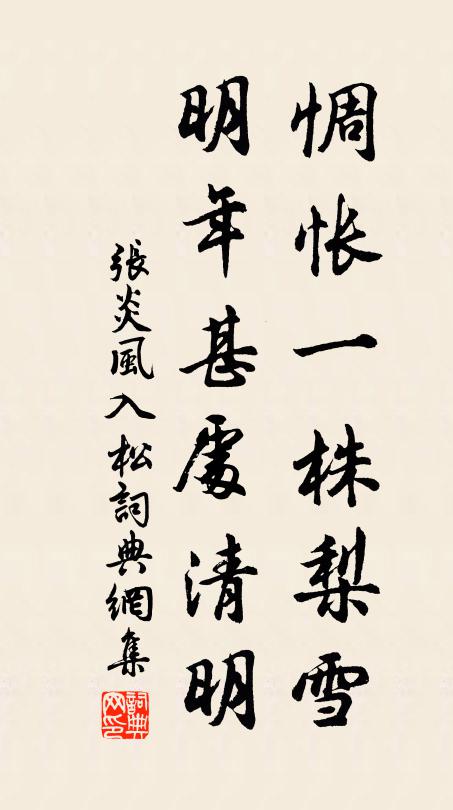 惆怅一株梨雪
明年甚處清明
張炎風入松詞典網集
詞典网印